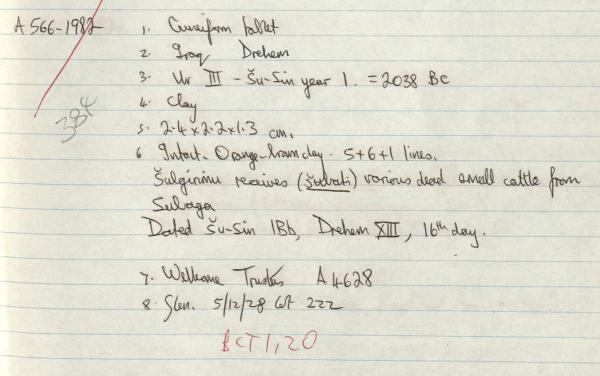 A 566-1982
1. Cuneiform tablet
2. Iraq Drehem
3. Ur III - Šu-Sin year 1. = 2038 BC
384
4. Clay
5. 2.4 x 2.2 x 1.3 cm.
6 Intact. Orange-brown clay. 5+6+1 lines.
Šulgirimu receives (šubati) various dead small cattle from
Sulaga
Dated Šu-Sin 1Bb, Drehem XIII, 16th day.
7. Wellcome Trustees A 4628
8. Glen. 5/12/28 Lot 222
BCT 1, 20